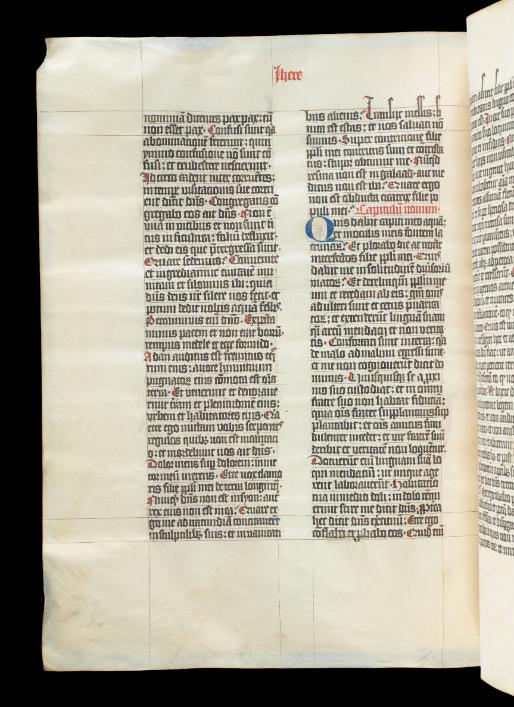 Ihere
nominiā dicentes pax pax: cū
non esset pax. Confusi sunt qa
abominationē fecerunt: quin
ymmo confusione nō sunt cō
fusi: et erubescere nescierunt.
Idcirco cadent inter corruētes:
in tempe visitationis sue corru
ent dicit dn̄s. Congregans cō
gregabo eos ait dn̄s. Non ē
vua in vitibus et non sunt fi
cus in ficulnea: foliū defluxit:
et dedi eis que p̄tergressa sunt.
Quare sedemus? Conuenite
et ingrediamur ciuitatē mu
nitam et sileamus ibi: quia
dn̄s deus nr̄ silere nos fecit: et
potum dedit nobis aquā fellis.
Peccauimus eni dn̄o. Expecta
uimus pacem et non erat bonū:
tempus medele et ecce formido.
A dan auditus est fremitus eq̄
rum eius: a voce hinnituum
pugnatorum eius cōmota est oīs
terra. Et venerunt et deuoraue
runt terram et plenitudinē eius:
vrbem et habitatores eius. Qia
ecce ego mittam vobis serpentes
regulos quibz non est incantati
o: et mordebunt vos ait dn̄s.
Dolor meus sup dolorem: in me
cor meū merens. Ecce vox clamo
ris filie pp̄li mei de terra longinq̄.
Nunqd dn̄s non est in syon: aut
rex eius non est in ea? Quare er
go me ad iracundiā concitauerūt
in sculptilibz suis: et in vanitati
bus alienis? Transijt messis: fi
nita est estas: et nos saluati nō
sumus. Super contritione filie
pp̄li mei contritus sum et cōtrista
tus: stupor obtinuit me. Nūqd
resina non est in galaad: aut me
dicus non est ibi? Quare ergo
non est obducta cicatrix filie po
puli mei? Capitulum nonum.
Quis dabit capiti meo aquā:
et oculis meis fontem la
crimarum? Et plorabo die ac nocte
interfectos filie pp̄li mei. Quis
dabit me in solitudine diuersoriū
viatorum? Et derelinquā pp̄lm me
um et recedam ab eis: quia om̄s
adulteri sunt et cetus p̄uarica
torum: et extenderunt linguā suam
quasi arcū mendacij et non verita
tis. Confortati sunt in terra: qa
de malo ad malum egressi sunt:
et me non cognouerūt dicit do
minus. Unusquisqz se a p̄xi
mo suo custodiat: et in omni
fratre suo non habeat fiduciā:
quia om̄s frater supplantans sup
plantabit: et om̄s amicus frau
dulenter incedet: et vir fratrē suū
deridebit et veritatē non loquētur.
Docuerūt eni linguam suā lo
qui mendaciū: ut inique age
rent laborauerūt. Habitatio
tua in medio doli: in dolo renu
erunt scire me dicit dn̄s. Prop̄
hec dicit dn̄s exercitū: Ecce ego
cōflabo et p̄babo eos. Quid eni